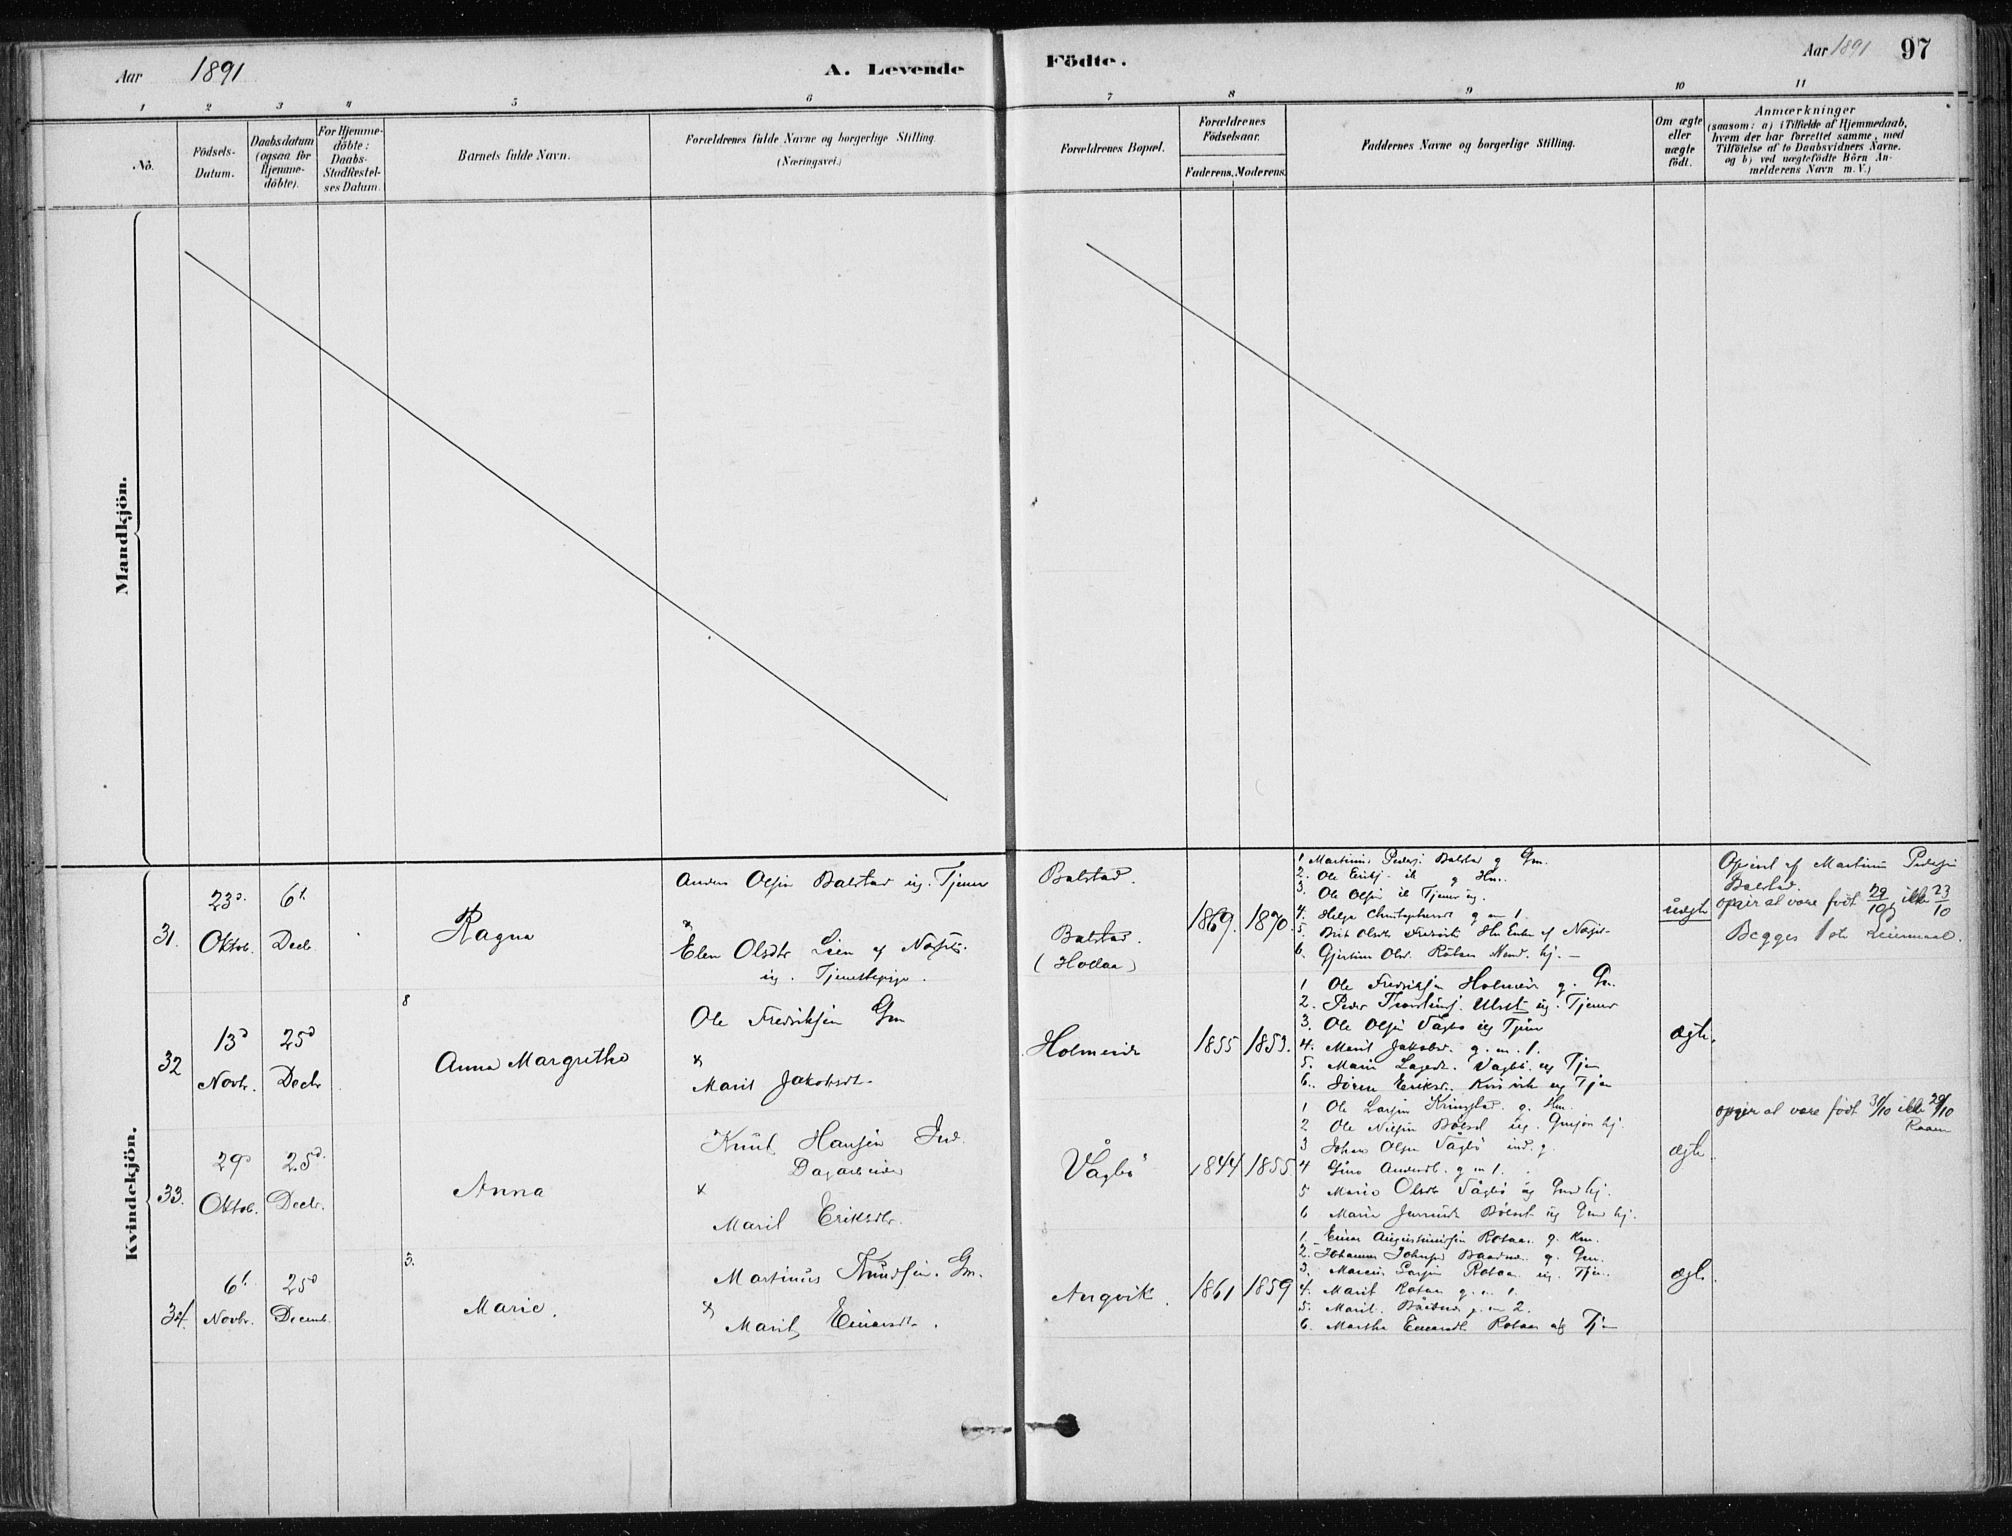 Aar 1891
A. Levende
Födte.
Aar 1891
97
1 2 3 4 5 6 7 8 9 10 11
No.
Födsels-
Datum.
Daabsdatum
(ogsaa for
Hjemme-
döbte).
For Hjemme-
döbte:
Daabs-
Stadfæstel-
ses Datum.
Barnets fulde Navn.
Forældrenes fulde Navne og borgerlige Stilling
(Næringsvei.)
Forældrenes Bopæl.
Forældrenes
Födselsaar.
Faderens. Moderens.
Faddernes Navne og borgerlige Stilling.
Om ægte
eller
uægte
födt.
Anmærkninger
(saasom: a) i Tilfælde af Hjemmedaab,
hvem der har forrettet samme, med
Tilföielse af to Daabsvidners Navne.
og b) ved uægtefödte Börn An-
melderens Navn m. V.)
Mandkjön.
Kvindekjön.
31.
23d
Oktob.
6t
Decb.
Ragna
Anders Olsen Balstad ug. Tjener
x
Elen Olsdtr Lien af
ug. Tjenestepige.
Balstad.
Balstad.
(Hollaa)
1869. 1870.
1 Martinus Peders. Balstad g Gm.
2. Ole g Hm.
3. Ole Olsen Tjener ug.
4. Helga g m 1.
5. Brit Olsdtr
6. Gjertine Olsd. Rotaas
uægte
Opgivet af Martinus Pedersen
Balstad.
opgir at være født 29/10, ikke 23/10
Begges 1ste Leiermaal.
32
13d
Novbr.
25d
Decbr
8
Anna Margrethe
Ole Fredriksen Gm
x
Marit Jakobsdt.
Holmeide
1855 1853.
1 Ole Fredriksen Holmeide g. Gm.
2. Peder Ulset ug. Tjener
3. Ole Olsen Vågbø ug Tjener
4. Marit Jakobsd. g. m. 1.
5. Marie Vågbø. ug Tjen
6. Eriksd. ug Tjen
ægte.
33.
29d
Oktob.
25d.
Decbr.
Anna
Knut Hansen Ind.
Dagarbeider
x
Marit Eriksdtr.
Vågbø
1844 1855
1 Ole Larsen Kringstad g. Hm.
2 Ole Nilsen Bølset ug. hj.
3 Johan Olsen Vågbø ind. g.
4 Andersdt. g m 1.
5 Marie Olsdtr Vågbø ug Gmd hj.
6 Marie Bølset ug Gmd hj.
ægte.
opgir at være født 31/10 ikke 29/10
34.
6t
Novbr.
25d
Decemb.
3.
Marie.
Martinus Knudsen. Gm.
x
Marit Einarsdt.
Angvik.
1861 1859
1. Einar Augustinussen Rotaas g. Km.
2. Johannes Johnsen g. Gm.
3. Larsen Rotaas ug. Tjen.
4. Marit Rotaas g. m 1.
5. Marit g. m 2.
6. Martha Einarsdt. Rotaas ug Tj
ægte.